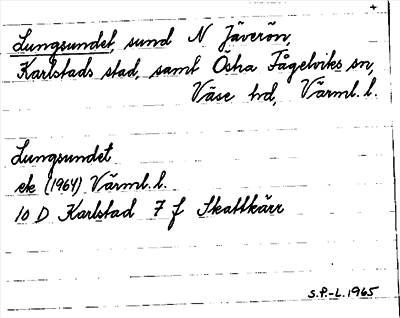 +
Lungsundet, sund N Jäverön,
Karlstads stad, samt Östra Fågelviks sn,
Väse hd, Värml. l.
Lungsundet
ek (1964) Värml. l.
10 D Karlstad 7 f Skattkärr
S.P.-L. 1965